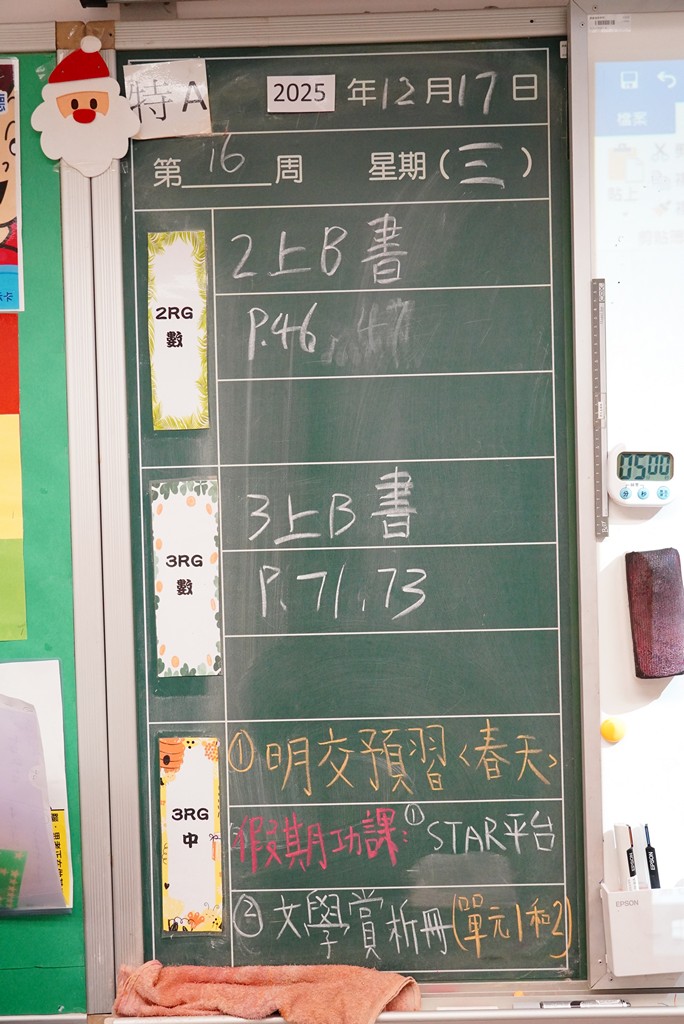 特A
2025 年12月17日
第 16 周 星期(三)
2RG
數
2上B書
P.46 47
3RG
數
3上B書
P.71,73
3RG
中
①明交預習<春天>
假期功課:①STAR平台
②文學賞析冊(單元1和2)
檔案
貼上
05 00
EPSON
EPSON